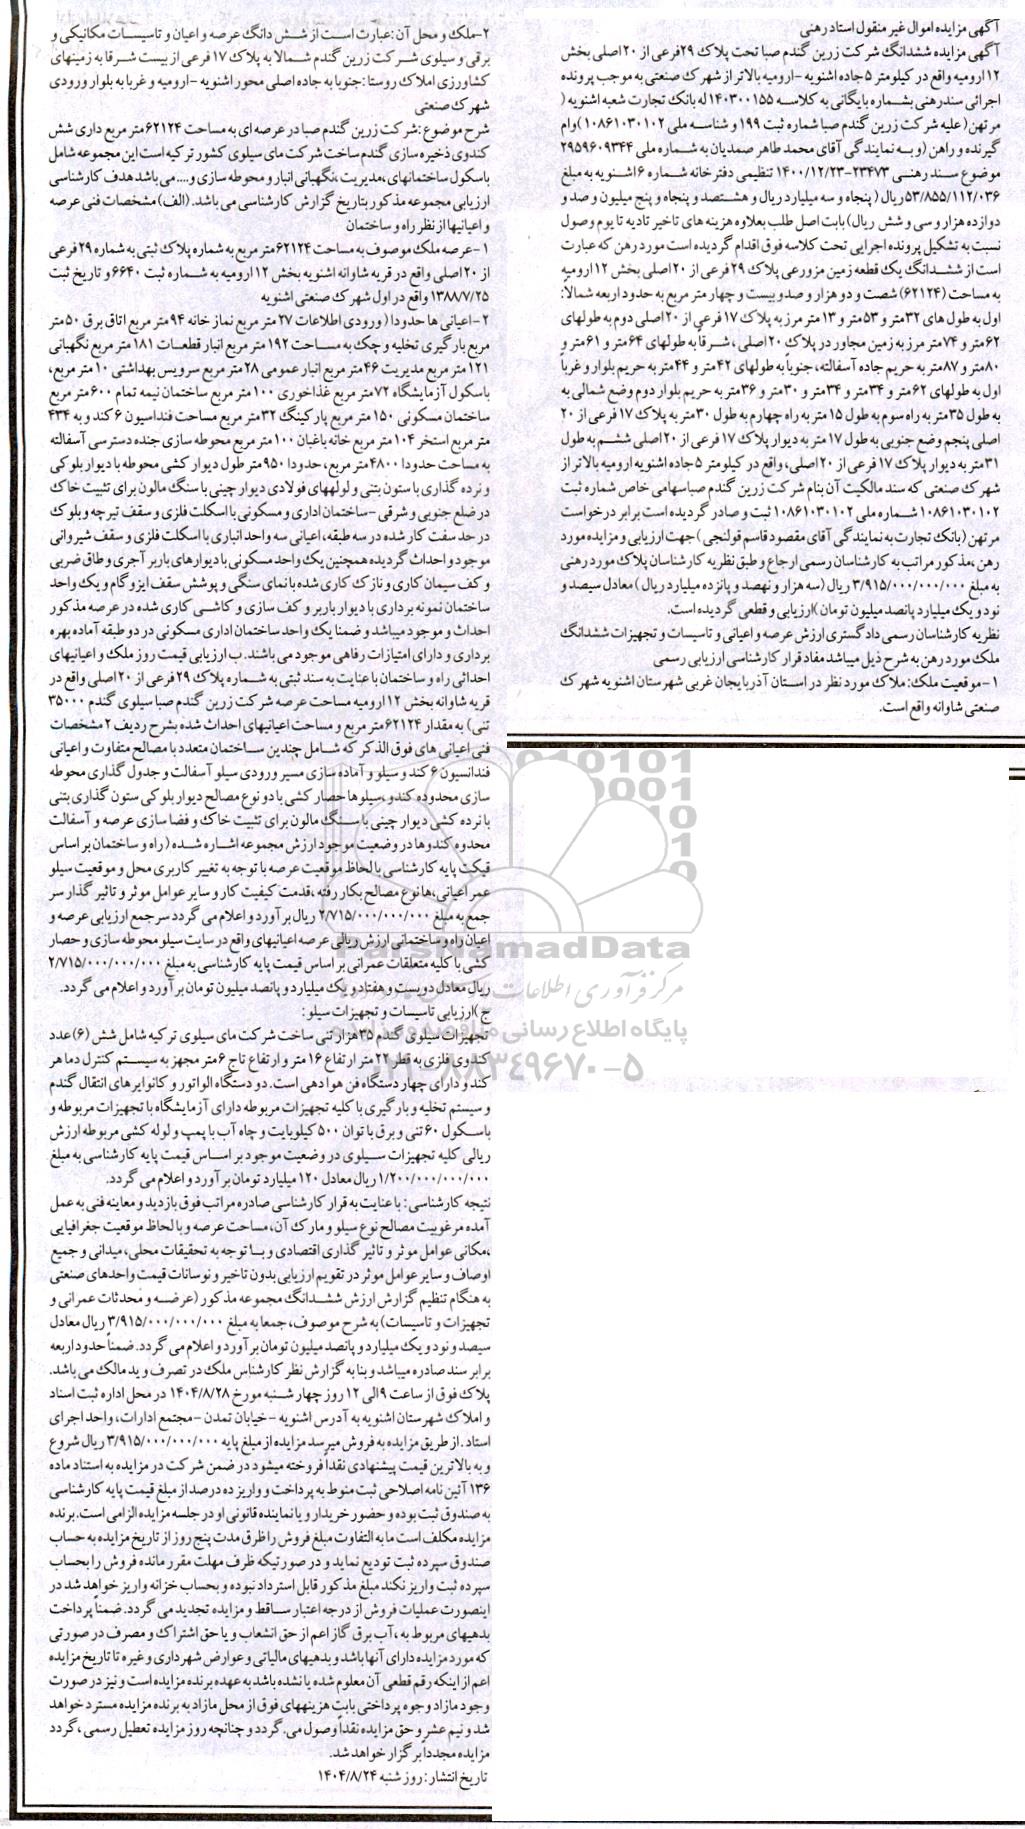 آگهی مزایده اموال غیر منقول اسناد رهنی
آگهی مزایده ششدانگ شرکت زرین گندم صبا تحت پلاک ۲۹فرعی از ۲۰اصلی بخش
۱۲ارومیه واقع در کیلومتر ۵جاده اشنویه -ارومیه بالاتر از شهرک صنعتی به موجب پرونده
اجرائی سند رهنی بشماره بایگانی به کلاسه ۱۴۰۳۰۰۱۵۵ له بانک تجارت شعبه اشنویه (
مرتهن) علیه شرکت زرین گندم صبا شماره ثبت ۱۹۹و شناسه ملی ۱۰۸۶۱۰۳۰۱۰۲)وام
گیرنده و راهن (و به نمایندگی آقای محمد طاهر صمدیان به شماره ملی ۲۹۵۹۶۰۹۳۴۴
موضوع سند رهنی ۲۳۴۷۳-۱۴۰۰/۱۲/۲۳ تنظیمی دفترخانه شماره ۶اشنویه به مبلغ
۵۳/۸۵۵/۱۱۲/۰۳۶ریال ( پنجاه و سه میلیارد ریال و هشتصد و پنجاه و پنج میلیون و صد و
دوازده هزار و سی و شش ریال) بابت اصل طلب بعلاوه هزینه های تاخیر تادیه تا یوم وصول
نسبت به تشکیل پرونده اجرایی تحت کلاسه فوق اقدام گردیده است مورد رهن که عبارت
است از ششدانگ یک قطعه زمین مزروعی پلاک ۲۹فرعی از ۲۰اصلی بخش ۱۲ارومیه
به مساحت (۶۲۱۲۴) شصت و دو هزار و صدو بیست و چهار متر مربع به حدود اربعه شمالا:
اول به طول های ۳۲متر و ۵۳متر و ۱۳متر مرز به پلاک ۱۷فرعی از ۲۰اصلی دوم به طولهای
۶۲متر و ۷۴متر مرز به زمین مجاور در پلاک ۲۰اصلی ، شرقاً به طولهای ۶۴متر و ۶۱متر و
۸۰متر و ۸۷متر به حریم جاده آسفالته، جنوباً به طولهای ۴۲متر و ۴۴متر به حریم بلوار و غرباً
اول به طولهای ۶۲متر و ۳۴متر و ۳۴متر و ۳۰متر و ۳۶متر به حریم بلوار دوم وضع شمالی به
به طول ۳۵متر به راه سوم به طول ۱۵متر به راه چهارم به طول ۳۰متر به پلاک ۱۷فرعی از ۲۰
اصلی پنجم وضع جنوبی به طول ۱۷متر به دیوار پلاک ۱۷فرعی از ۲۰اصلی ششم به طول
۳۱متر به دیوار پلاک ۱۷فرعی از ۲۰اصلی، واقع در کیلومتر ۵جاده اشنویه ارومیه بالاتر از
شهرک صنعتی که سند مالکیت آن بنام شرکت زرین گندم صباسهامی خاص شماره ثبت
۱۰۸۶۱۰۳۰۱۰۲ شماره ملی ۱۰۸۶۱۰۳۰۱۰۲ ثبت و صادر گردیده است برابر درخواست
مرتهن (بانک تجارت به نمایندگی آقای مقصود قاسم قولنجی) جهت ارزیابی و مزایده مورد
رهن ،مذکور مراتب به کارشناسان رسمی ارجاع و طبق نظریه کارشناسان پلاک مورد رهنی
به مبلغ ۳/۹۱۵/۰۰۰/۰۰۰/۰۰۰ ریال (سه هزار و نهصد و پانزده میلیارد ریال) معادل سیصد و
نود و یک میلیارد پانصد میلیون تومان)ارزیابی و قطعی گردیده است.
نظریه کارشناسان رسمی دادگستری ارزش عرصه و اعیانی و تاسیسات و تجهیزات ششدانگ
ملک مورد رهن به شرح ذیل میباشد مفاد قرار کارشناسی ارزیابی رسمی
۱-موقعیت ملک: ملاک مورد نظر در استان آذربایجان غربی شهرستان اشنویه شهرک
صنعتی شاوانه واقع است.
۲-ملک و محل آن :عبارت است از شش دانگ عرصه و اعیان و تاسیسات مکانیکی و
برقی و سیلوی شرکت زرین گندم شمالا به پلاک ۱۷فرعی از بیست شرقا به زمینهای
کشاورزی املاک روستا :جنوبا به جاده اصلی محور اشنویه -ارومیه و غربا به بلوار ورودی
شهرک صنعتی
شرح موضوع :شرکت زرین گندم صبا در عرصه ای به مساحت ۶۲۱۲۴متر مربع داری شش
کندوی ذخیره سازی گندم ساخت شرکت مای سیلوی کشور ترکیه است این مجموعه شامل
باسکول ساختمانهای ،مدیریت ،نگهبانی انبار و محوطه سازی و.... می باشد هدف کارشناسی
ارزیابی مجموعه مذکور بتاریخ گزارش کارشناسی می باشد. (الف) مشخصات فنی عرصه
و اعیانیها از نظر راه و ساختمان
۱-عرصه ملک موصوف به مساحت ۶۲۱۲۴متر مربع به شماره پلاک ثبتی به شماره ۲۹فرعی
از ۲۰اصلی واقع در قریه شاوانه اشنویه بخش ۱۲ارومیه به شماره ثبت ۶۶۴۰و تاریخ ثبت
۱۳۸۸/۷/۲۵ واقع در اول شهرک صنعتی اشنویه
۲-اعیانی ها حدودا (ورودی اطلاعات ۲۷متر مربع نماز خانه ۹۴متر مربع اتاق برق ۵۰متر
مربع بارگیری تخلیه و چک به مساحت ۱۹۲متر مربع انبار قطعات ۱۸۱متر مربع نگهبانی
۱۲۱متر مربع مدیریت ۴۶متر مربع انبار عمومی ۲۸متر مربع سرویس بهداشتی ۱۰متر مربع،
باسکول آزمایشگاه ۷۲متر مربع غذاخوری ۱۰۰متر مربع ساختمان نیمه تمام ۶۰۰متر مربع
ساختمان مسکونی ۱۵۰متر مربع پارکینگ ۳۲متر مربع مساحت فنداسیون ۶کند و به ۴۳۴
متر مربع استخر ۱۰۴متر مربع خانه باغبان ۱۰۰متر مربع محوطه سازی جنده دسترسی آسفالته
به مساحت حدودا ۴۸۰۰متر مربع، حدودا ۹۵۰متر طول دیوار کشی محوطه با دیوار بلوکی
و نرده گذاری با ستون بتنی و لولههای فولادی دیوار چینی با سنگ مالون برای تثبیت خاک
در ضلع جنوبی و شرقی -ساختمان اداری و مسکونی با اسکلت فلزی و سقف تیرچه و بلوک
در حد سفت کار شده در سه طبقه، اعیانی سه واحد انباری با اسکلت فلزی و سقف شیروانی
موجود و احداث گردیده همچنین یک واحد مسکونی با دیوارهای باربر آجری و طاق ضربی
و کف سیمان کاری و نازک کاری شده با نمای سنگی و پوشش سقف ایزوگام و یک واحد
ساختمان نمونه برداری با دیوار باربر و کف سازی و کاشی کاری شده در عرصه مذکور
احداث و موجود میباشد و ضمنا یک واحد ساختمان اداری مسکونی در دو طبقه آماده بهره
برداری و دارای امتیازات رفاهی موجود می باشند. ب ارزیابی قیمت روز ملک و اعیانیهای
احداثی راه و ساختمان با عنایت به سند ثبتی به شماره پلاک ۲۹فرعی از ۲۰اصلی واقع در
قریه شاوانه بخش ۱۲ارومیه مساحت عرصه شرکت زرین گندم صبا سیلوی گندم ۳۵۰۰۰
تنی) به مقدار ۶۲۱۲۴متر مربع و مساحت اعیانیهای احداث شده بشرح ردیف ۲مشخصات
فنی اعیانی های فوق الذکر که شامل چندین ساختمان متعدد با مصالح متفاوت و اعیانی
فندانسیون ۶کند و سیلو و آماده سازی مسیر ورودی سیلو آسفالت و جدول گذاری محوطه
سازی محدوده کندو ،سیلوها حصار کشی با دو نوع مصالح دیوار بلوکی ستون گذاری بتنی
با نرده کشی دیوار چینی با سنگ مالون برای تثبیت خاک و فضا سازی عرصه و آسفالت
محدوه کندوها در وضعیت موجود ارزش مجموعه اشاره شده (راه و ساختمان بر اساس
قیکت پایه کارشناسی با لحاظ موقعیت عرصه با توجه به تغییر کاربری محل و موقعیت سیلو
عمر اعیانی،ها نوع مصالح بکار رفته ،قدمت کیفیت کار و سایر عوامل موثر و تاثیر گذار سر
جمع به مبلغ ۲/۷۱۵/۰۰۰/۰۰۰/۰۰۰ ریال برآورد و اعلام می گردد سر جمع ارزیابی عرصه و
اعیان راه و ساختمانی ارزش ریالی عرصه اعیانیهای واقع در سایت سیلو محوطه سازی و حصار
کشی با کلیه متعلقات عمرانی بر اساس قیمت پایه کارشناسی به مبلغ ۲/۷۱۵/۰۰۰/۰۰۰/۰۰۰
ریال معادل دویست و هفتاد و یک میلیارد و پانصد میلیون تومان برآورد و اعلام می گردد.
ج )ارزیابی تاسیسات و تجهیزات سیلو :
تجهیزات سیلوی گندم ۳۵هزار تنی ساخت شرکت مای سیلوی ترکیه شامل شش (۶)عدد
کندوی فلزی به قطر ۲۲متر ارتفاع ۱۶متر و ارتفاع تاج ۶متر مجهز به سیستم کنترل دما هر
کندو دارای چهار دستگاه فن هوا دهی است. دو دستگاه الواتور و کانوایرهای انتقال گندم
و سیستم تخلیه و بارگیری با کلیه تجهیزات مربوطه دارای آزمایشگاه با تجهیزات مربوطه و
باسکول ۶۰تنی و برق با توان ۵۰۰کیلوبایت و چاه آب با پمپ و لوله کشی مربوطه ارزش
ریالی کلیه تجهیزات سیلوی در وضعیت موجود بر اساس قیمت پایه کارشناسی به مبلغ
۱/۲۰۰/۰۰۰/۰۰۰/۰۰۰ ریال معادل ۱۲۰میلیارد تومان برآورد و اعلام می گردد.
نتیجه کارشناسی : با عنایت به قرار کارشناسی صادره مراتب فوق بازدید و معاینه فنی به عمل
آمده مرغوبیت مصالح نوع سیلو و مارک آن، مساحت عرصه و با لحاظ موقعیت جغرافیایی
،مکانی عوامل موثر و تاثیر گذاری اقتصادی و بـا توجه به تحقیقات محلی، میدانی و جمیع
اوصاف و سایر عوامل موثر در تقویم ارزیابی بدون تاخیر و نوسانات قیمت واحدهای صنعتی
به هنگام تنظیم گزارش ارزش ششدانگ مجموعه مذکور (عرضه و محدثات عمرانی و
تجهیزات و تاسیسات) به شرح موصوف، جمعا به مبلغ ۳/۹۱۵/۰۰۰/۰۰۰/۰۰۰ ریال معادل
سیصد و نود و یک میلیارد و پانصد میلیون تومان برآورد و اعلام می گردد. ضمناً حدود اربعه
برابر سند صادره میباشد و بنا به گزارش نظر کارشناس ملک در تصرف و ید مالک می باشد.
پلاک فوق از ساعت ۹الی ۱۲روز چهارشنبه مورخ ۱۴۰۴/۸/۲۸ در محل اداره ثبت اسناد
و املاک شهرستان اشنویه به آدرس اشنویه -خیابان تمدن -مجتمع ادارات، واحد اجرای
اسناد . از طریق مزایده به فروش میرسد مزایده از مبلغ پایه ۳/۹۱۵/۰۰۰/۰۰۰/۰۰۰ ریال شروع
و به بالاترین قیمت پیشنهادی نقداً فروخته میشود در ضمن شرکت در مزایده به استناد ماده
۱۳۶آئین نامه اصلاحی ثبت منوط به پرداخت و واریز ده درصد از مبلغ قیمت پایه کارشناسی
به صندوق ثبت بوده و حضور خریدار و یا نماینده قانونی او در جلسه مزایده الزامی است.برنده
مزایده مکلف است مابه التفاوت مبلغ فروش را ظرق مدت پنج روز از تاریخ مزایده به حساب
صندوق سپرده ثبت تودیع نماید و در صورتیکه ظرف مهلت مقرر مانده فروش را بحساب
سپرده ثبت واریز نکند مبلغ مذکور قابل استرداد نبوده و بحساب خزانه واریز خواهد شد در
اینصورت عملیات فروش از درجه اعتبار ساقط و مزایده تجدید می گردد. ضمناً پرداخت
بدهیهای مربوط به ،آب برق گاز اعم از حق انشعاب و یا حق اشتراک و مصرف در صورتی
که مورد مزایده دارای آنها باشد و بدهیهای مالیاتی و عوارض شهرداری و غیره تا تاریخ مزایده
اعم از اینکه رقم قطعی آن معلوم شده یا نشده باشد به عهده برنده مزایده است و نیز در صورت
وجود مازاد وجوه پرداختی بابت هزینههای فوق از محل مازاد به برنده مزایده مسترد خواهد
شد و نیم عشر و حق مزایده نقداً وصول می.گردد و چنانچه روز مزایده تعطیل رسمی ،گردد
مزایده مجدداً برگزار خواهد شد.
تاریخ انتشار : روز شنبه ۱۴۰۴/۸/۲۴
ParsNamadData
مرکز فرآوری اطلاعات
پایگاه اطلاع رسانی
۰۲۱-۸۸۳۴۹۶۷۰-۵